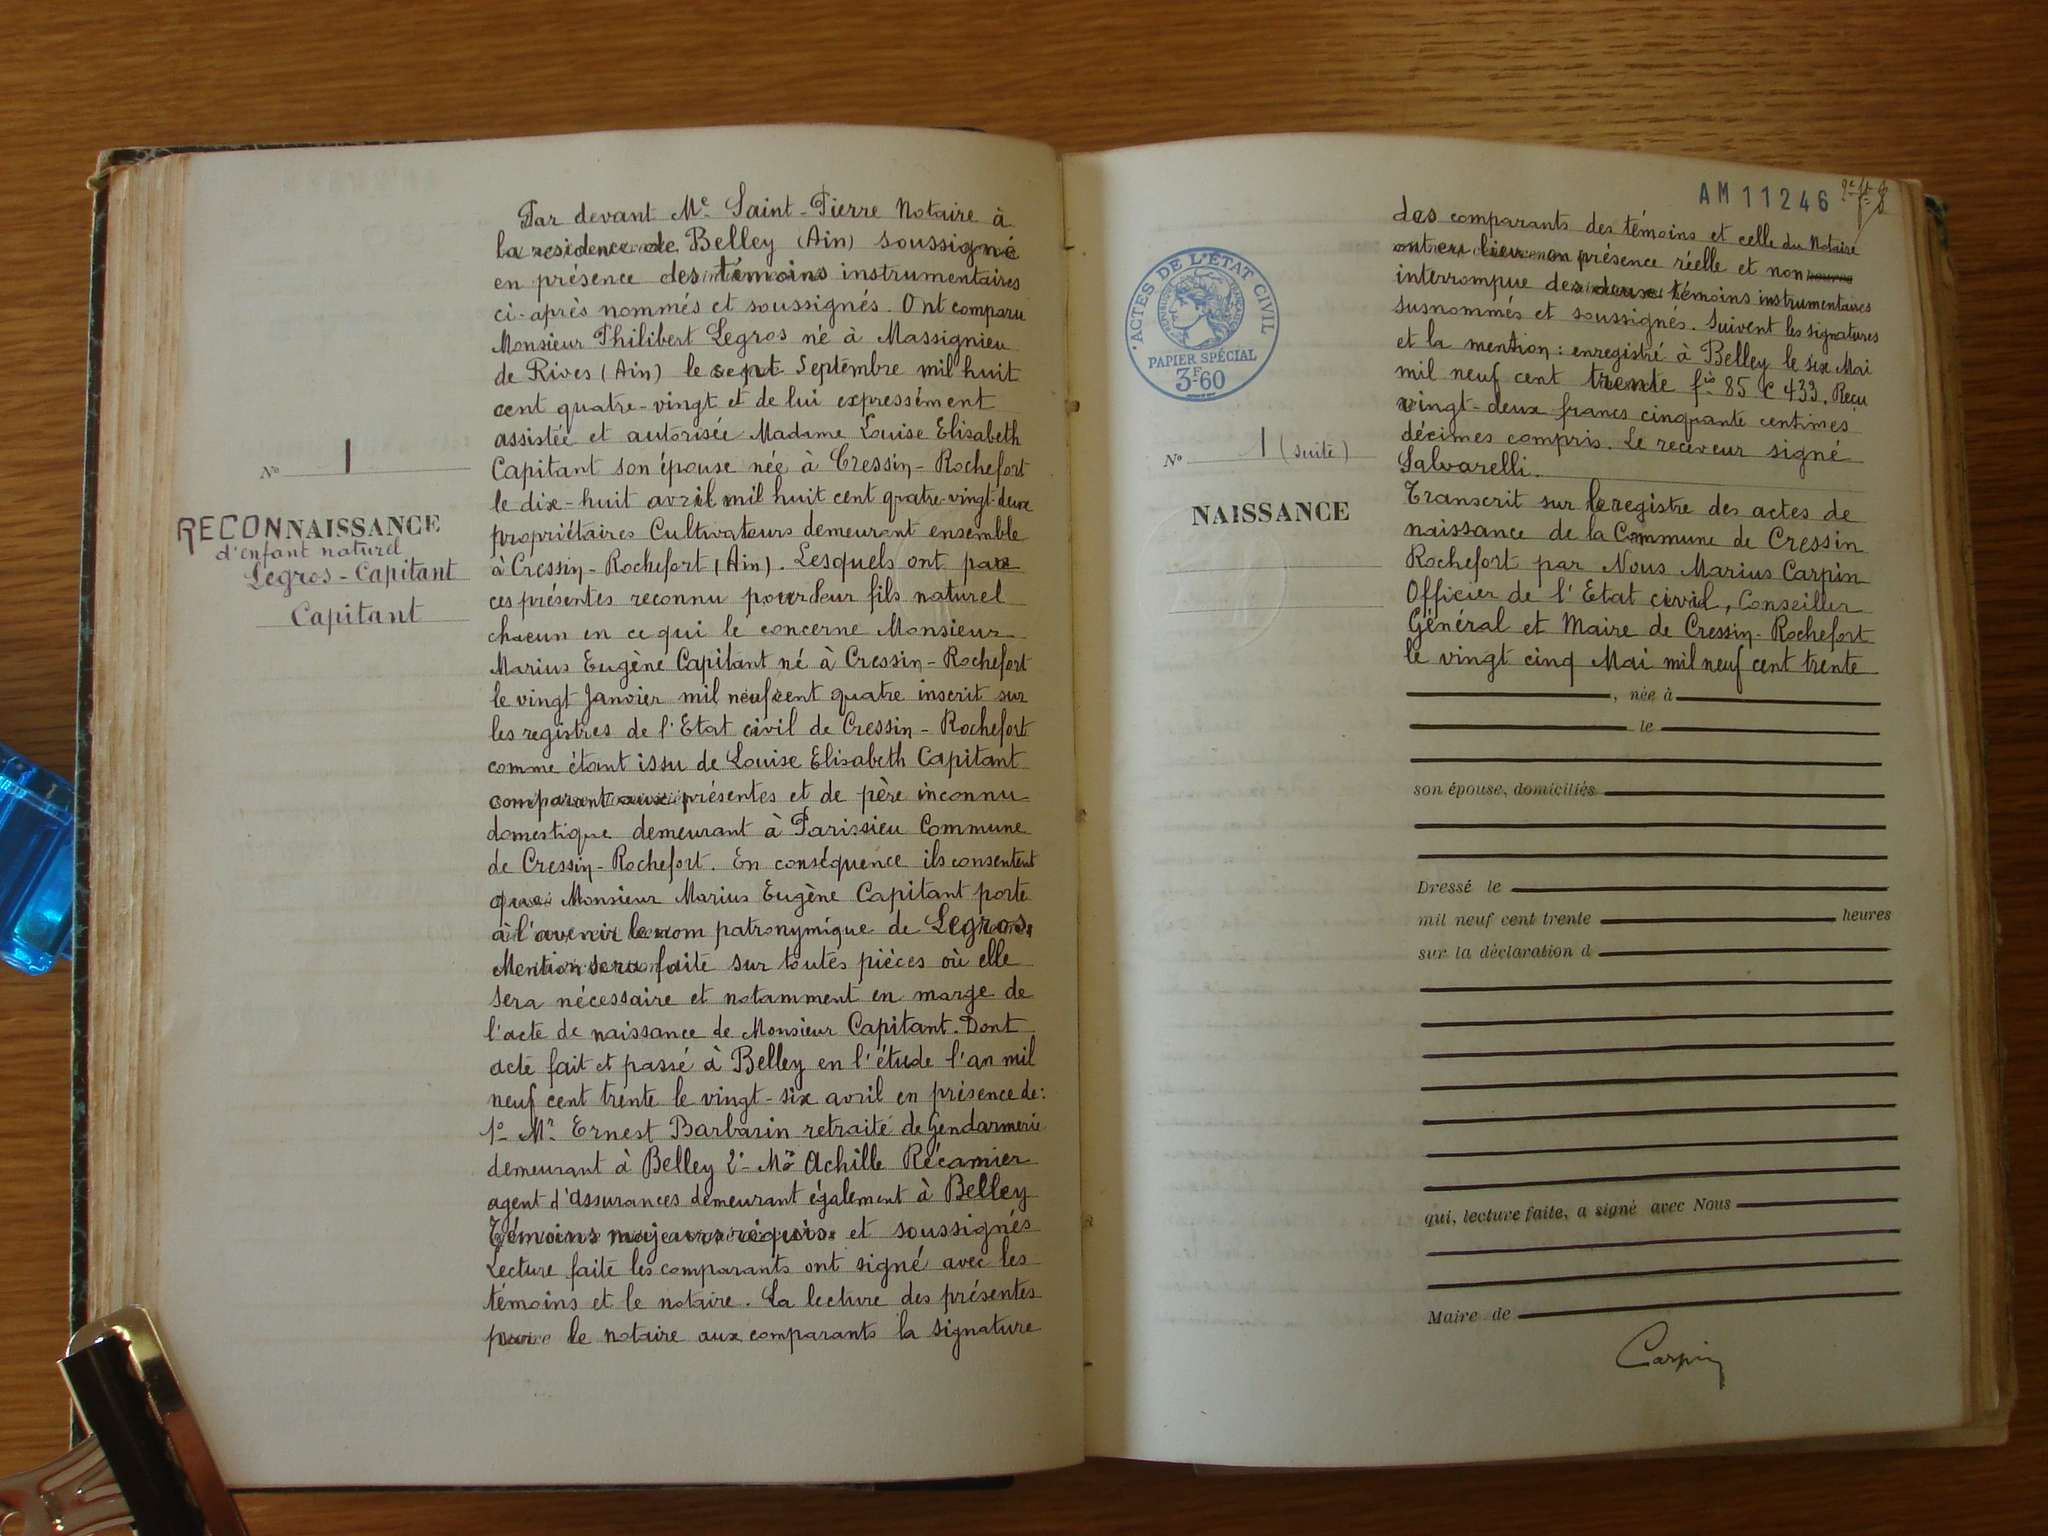 N° 1
RECONNAISSANCE
d'enfant naturel
Legros - Capitant
Capitant
Par devant Me Saint-Pierre Notaire à
la residence de Belley (Ain) soussigné
en présence des témoins instrumentaires
ci-après nommés et soussignés. Ont comparu
Monsieur Philibert Legros né à Massignieu
de Rives (Ain) le sept Septembre mil huit
cent quatre-vingt et de lui expressément
assistée et autorisée Madame Louise Elisabeth
Capitant son épouse née à Cressin-Rochefort
le dix-huit avril mil huit cent quatre-vingt-deux
propriétaires Cultivateurs demeurant ensemble
à Cressin-Rochefort (Ain). Lesquels ont par
ces présentes reconnu pour leur fils naturel
chacun en ce qui le concerne Monsieur
Marius Eugène Capitant né à Cressin-Rochefort
le vingt Janvier mil neuf cent quatre inscrit sur
les registres de l'Etat civil de Cressin-Rochefort
comme étant issu de Louise Elisabeth Capitant
comparant aux présentes et de père inconnu
domestique demeurant à Parissieu Commune
de Cressin-Rochefort. En conséquence ils consentent
que Monsieur Marius Eugène Capitant porte
à l'avenir le nom patronymique de Legros.
Mention sera faite sur toutes pièces où elle
sera nécessaire et notamment en marge de
l'acte de naissance de Monsieur Capitant. Dont
acte fait et passé à Belley en l'étude l'an mil
neuf cent trente le vingt-six avril en présence de:
1° Mr Ernest Barbarin retraité de Gendarmerie
demeurant à Belley 2° Mr Achille Récamier
agent d'assurances demeurant également à Belley
Témoins majeurs requis et soussignés
Lecture faite les comparants ont signé avec les
témoins et le notaire. La lecture des présentes
par le notaire aux comparants la signature
AM 11246
ACTES DE L'ÉTAT CIVIL
RÉPUBLIQUE FRANÇAISE
PAPIER SPÉCIAL
3F60
N° 1 (suite)
NAISSANCE
des comparants des témoins et celle du Notaire
ont eu lieu en présence réelle et non
interrompue des deux témoins instrumentaires
susnommés et soussignés. Suivent les signatures
et la mention: enregistré à Belley le six Mai
mil neuf cent trente f° 85 C 433. Reçu
vingt-deux francs cinquante centimes
décimes compris. Le receveur signé
Salvarelli.
Transcrit sur le registre des actes de
naissance de la Commune de Cressin
Rochefort par Nous Marius Carpin
Officier de l'Etat civil, Conseiller
Général et Maire de Cressin-Rochefort
le vingt cinq Mai mil neuf cent trente
, née à
le
son épouse, domiciliés
Dressé le
mil neuf cent trente heures
sur la déclaration d
qui, lecture faite, a signé avec Nous
Maire de
Carpin